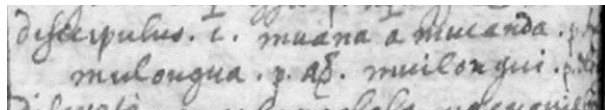 discipulus. i. muana a mucanda. p.
mulongua. p. aꝶ. muilongui. p.